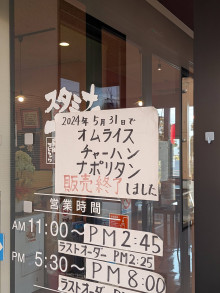 スタミナ
2024年5月31日で
オムライス
チャーハン
ナポリタン
販売終了しました
営業時間
AM 11:00~PM2:45
ラストオーダー PM2:25
PM 5:30~PM8:00
ラストオーダー